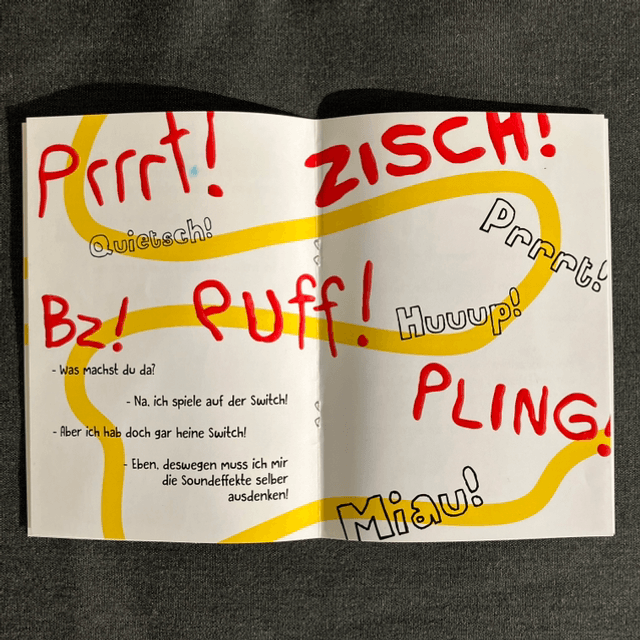 Prrrt!
Quietsch!
Bz!
PUff!
- Was machst du da?
- Na, ich spiele auf der Switch!
- Aber ich hab doch gar heine Switch!
- Eben, deswegen muss ich mir
die Soundeffekte selber
ausdenken!
ZISCH!
Prrrt!
Huuup!
PLING!
Miau!